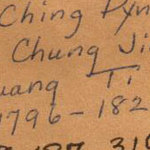 Ching Dyn
Chung Ji
uang Ti
1796-182